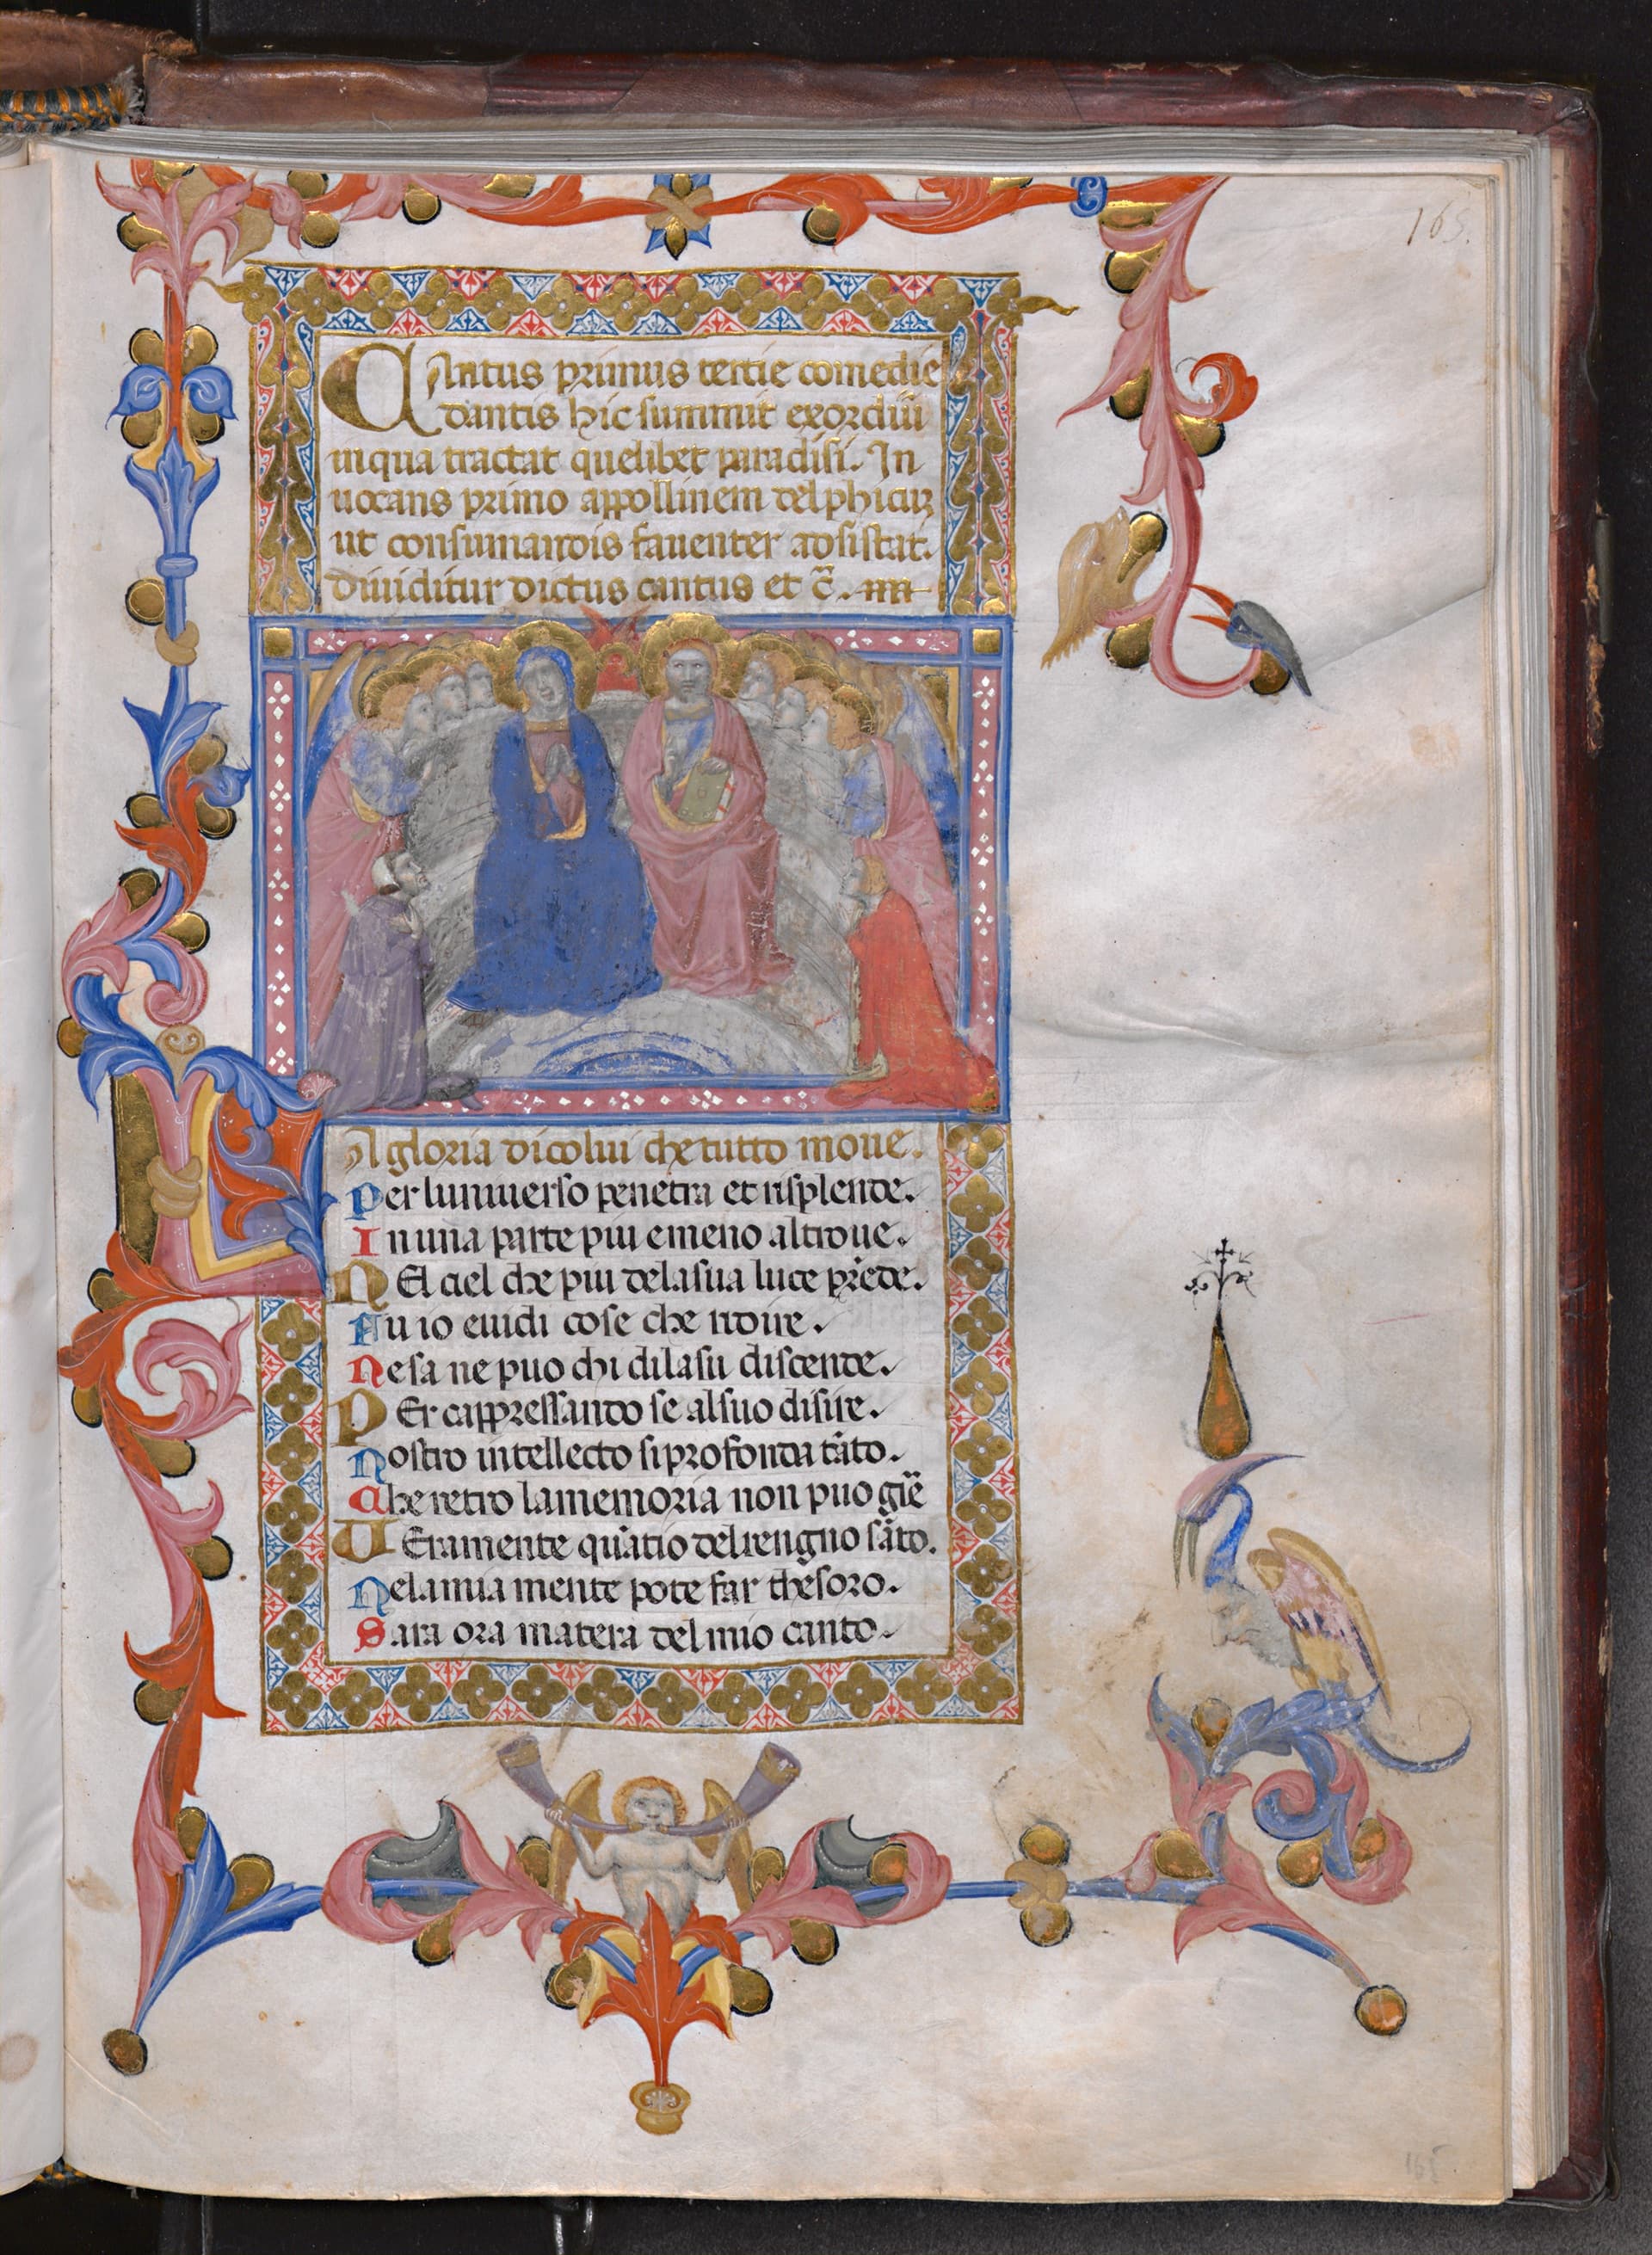 165.
Cantus primus tertie comedie
dantis hic summit exordiũ
inqua tractat quelibet paradisi. In
uocans primo appollinem delphicuꝫ
ut consumandis fauenter adsistat.
diuiditur dictus cantus et c̃.
LA gloria dicolui che tutto moue.
Per luniuerso penetra et risplende.
In una parte piu e meno altroue.
NEl ciel che piu dela sua luce prẽde.
Fu io euidi cose che ridire.
Ne sa ne puo chi dilasu discende.
PEr cappressando se alsuo disire.
Nostro intellecto si profonda tãto.
Che retro lamemoria non puo gire
VEramente quãtio del rengno sãto.
Nela mia mente pote far thesoro.
Sara ora matera del mio canto.
165